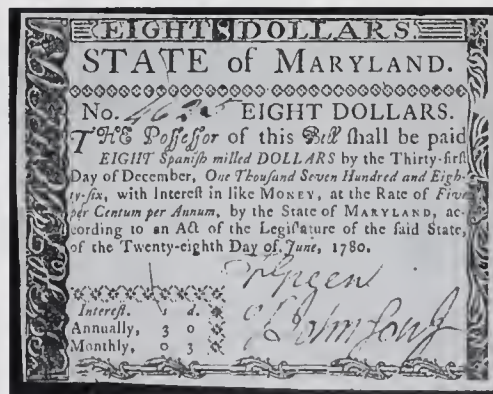 EIGHT DOLLARS
STATE of MARYLAND.
No. 4625 EIGHT DOLLARS.
THE Poſſeſſor of this Bill ſhall be paid
EIGHT Spaniſh milled DOLLARS by the Thirty-firſt
Day of December, One Thouſand Seven Hundred and Eigh-
ty-ſix, with Intereſt in like MONEY, at the Rate of Five
per Centum per Annum, by the State of MARYLAND, ac-
cording to an Act of the Legiſlature of the ſaid State,
of the Twenty-eighth Day of June, 1780.
Green
Intereſt. s. d.
Annually, 3 0
Monthly, 0 3